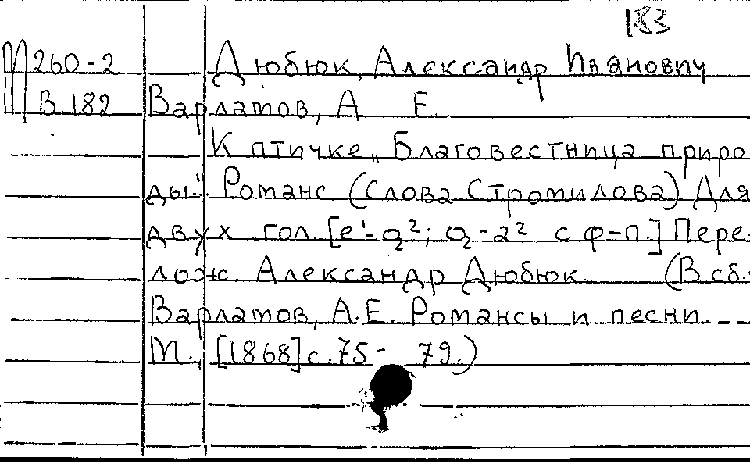 183
М 260-2 Дюбюк, Александр Иванович
В 182 Варламов, А. Е.
К птичке „Благовестница приро-
ды". Романс (Слова Стромилова) Для
двух гол. [e¹-g²; g-a² с ф-п.] Пере-
лож. Александр Дюбюк. (В сб.:
Варламов, А.Е. Романсы и песни. ---
М., [1868] с. 75- 79.)